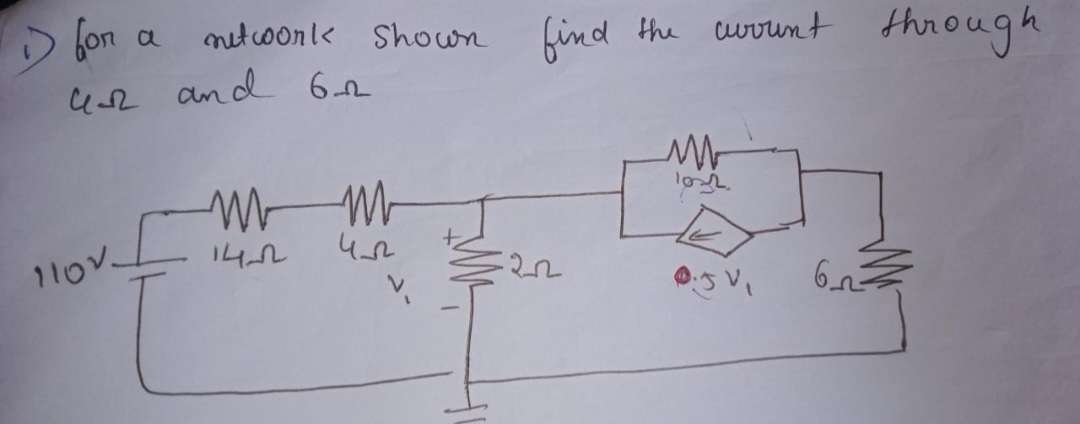 1) for a network shown find the current through
4Ω and 6Ω
10Ω
110V
14Ω
4Ω
+
V₁
-
2Ω
0.5 V₁
6Ω